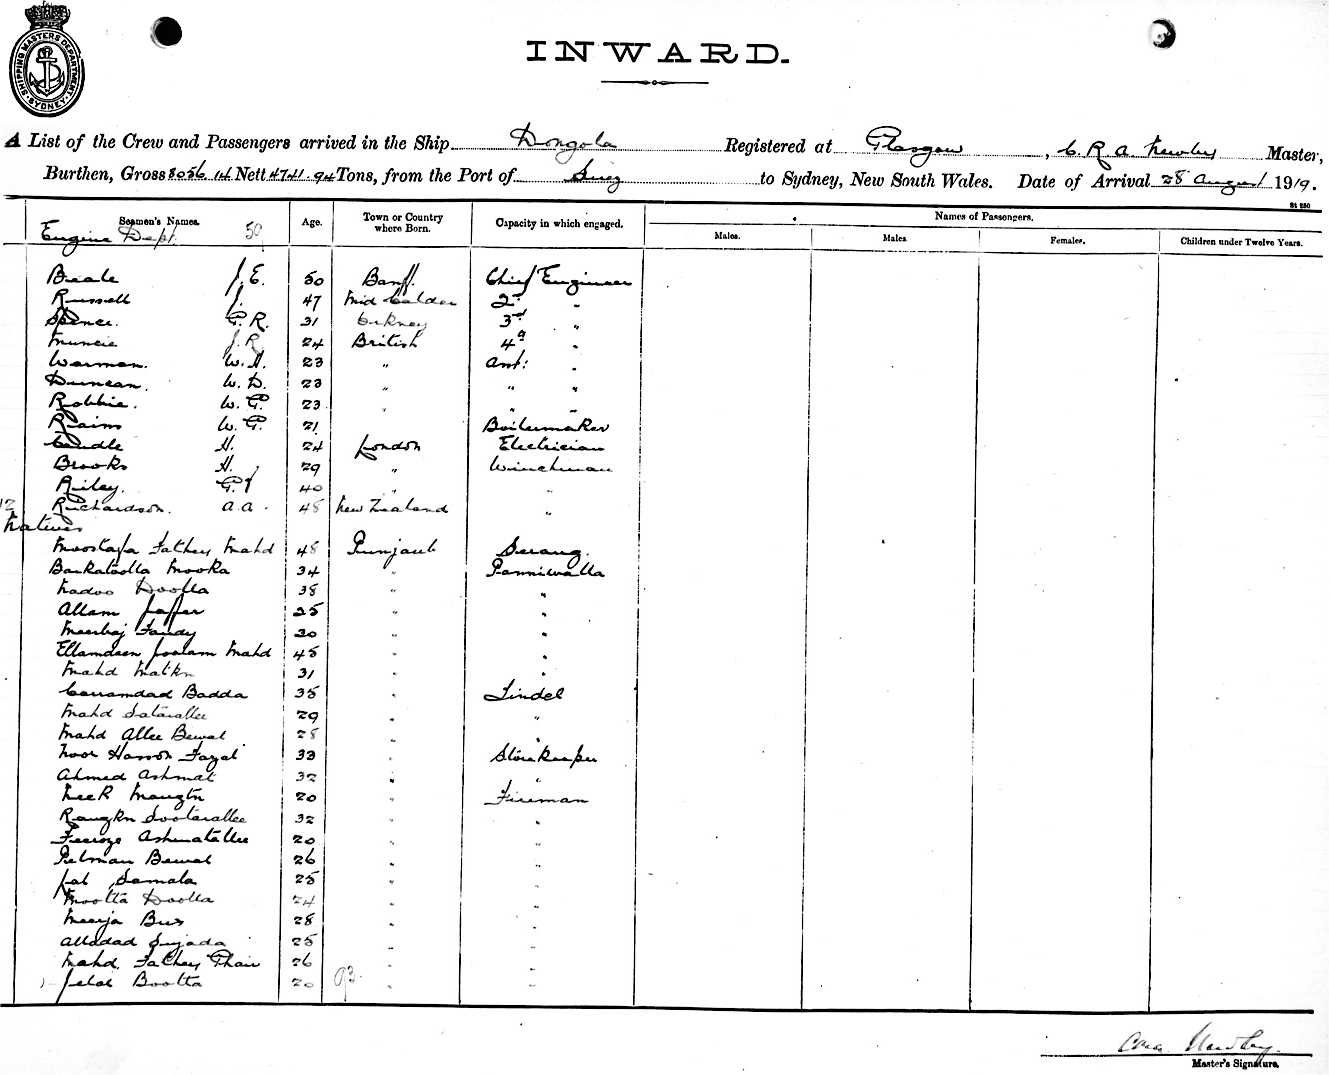 SHIPPING MASTERS DEPARTMENT SYDNEY
INWARD.
A List of the Crew and Passengers arrived in the Ship Dongola Registered at Glasgow, C. R. A. Newby Master,
Burthen, Gross 8056.14 Nett 4741.94 Tons, from the Port of Suez to Sydney, New South Wales. Date of Arrival 28 August 1919.
St 250
Seamen's Names. Age. Town or Country where Born. Capacity in which engaged. Names of Passengers.
Males. Males. Females. Children under Twelve Years.
Engine Dept. 50
Beale J. E. 50 Banff. Chief Engineer
Russell J. 47 Mid Calder 2nd "
Spence. G. R. 31 Orkney 3rd "
Muncie J. R. 24 British 4th "
Warman. W. H. 23 " Asst: "
Duncan. W. D. 23 " " "
Robbie. W. G. 23 " " "
Rains W. G. 21 Boilermaker
Caudle H. 24 London Electrician
Brooks H. 29 " Winchman
Riley. G. J 40 " "
12 Richardson. A. A. 48 New Zealand "
Natives
Moostafa Fathey Mahd 48 Punjaub Serang.
Barkatoolla Mooka 34 " Panniwalla
Nadoo Doolla 38 " "
Allam Jaffer 25 " "
Meerbaj Fandy 30 " "
Ellamdeen Goolam Mahd 45 " "
Mahd Malikn 31 " "
Carramdad Badda 35 " Tindel
Mahd Satarallee 29 " "
Mahd Allee Bewal 28 " "
Noor Hasson Fazal 33 " Storekeeper
Ahmed Ashmat 32 " "
Neek Mangtn 20 " Fireman
Rangkn Sootarallee 32 " "
Feeroze Ashmatallee 20 " "
Pulman Bewal 26 " "
Jal Samala 25 " "
Mootta Doolla 24 " "
Meerja Bux 28 " "
Alladad Sujada 25 " "
Mahd. Fathey Khan 26 " "
Jelal Bootta 20 93. " "
Newby.
Master's Signature.